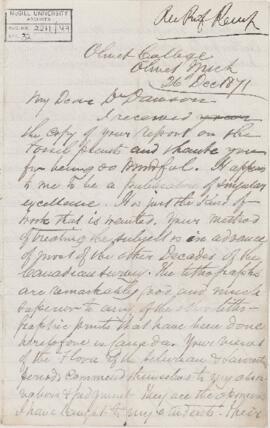 McGILL UNIVERSITY
ARCHIVES
ACC. NO. 2211 / 49
REF. 32
Olivet College
Olivet Mich
26 Dec 1871
My Dear Dr Dawson
I received
the copy of your report on the
fossil plants and thank you
for being so mindful. It appears
to me to be a publication of singular
excellence. It is just the kind of
work that is wanted. Your method
of treating the subject is in advance
of most of the other Decades of the
Canadian Survey. The lithographs
are remarkably good and much
superior to any of the other litho-
graphic prints that have been done
heretofore in Canada. Your views
of the Flora of the Silurian & Devonian
periods commend themselves to my obser-
vations & judgment. They are the opinions
I have taught to my students. There